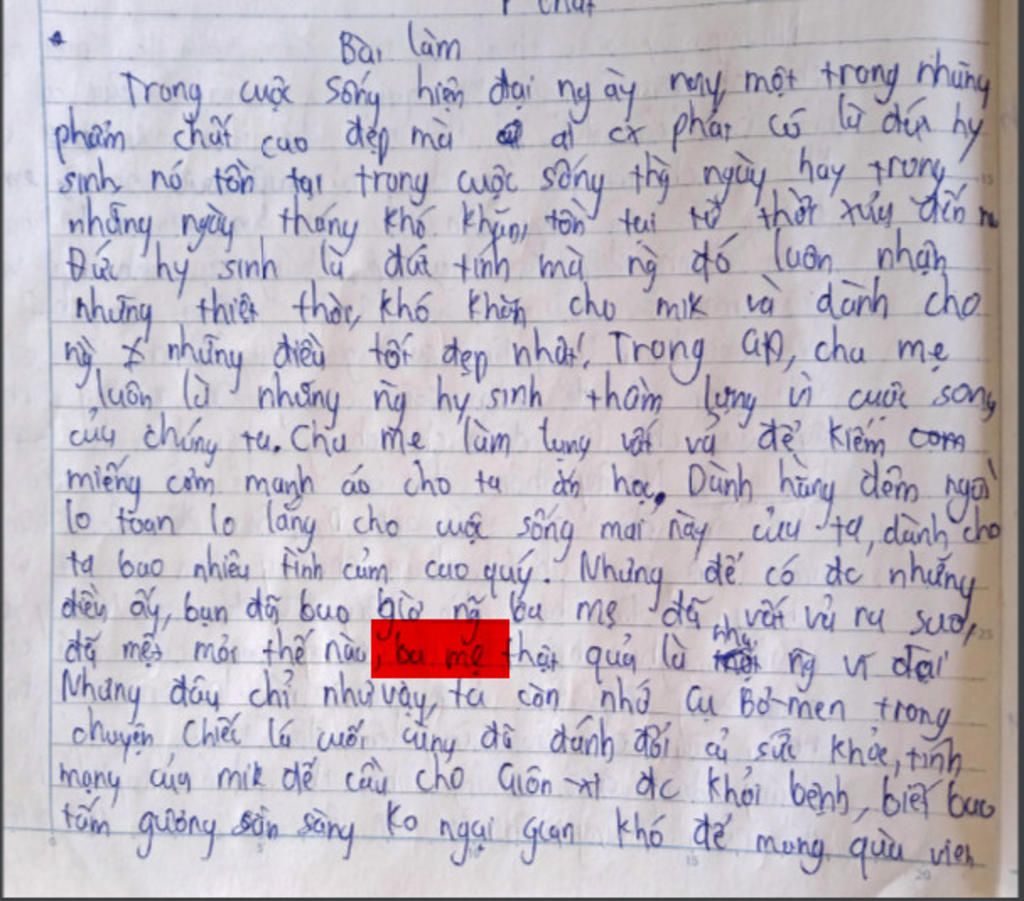 chất
Bài làm
Trong cuộc sống hiện đại ng ày nay, một trong những
phẩm chất cao đẹp mà ai cx phải có là đức hy
sinh, nó tồn tại trong cuộc sống thg ngày hay trong
những ngày tháng khó khăn, tồn tại từ thời xưa đến n
Đức hy sinh là đức tính mà ng đó luôn nhận
những thiệt thòi, khó khăn cho mik và dành cho
ng ≠ những điều tốt đẹp nhất. Trong GĐ, cha mẹ
luôn là những ng hy sinh thầm lặng vì cuộc sống
của chúng ta. Cha mẹ làm lụng vất vả để kiếm cơm
miếng cơm manh áo cho ta ăn học. Dành hàng đêm ngồi
lo toan lo lắng cho cuộc sống mai này của ta, dành cho
ta bao nhiêu tình cảm cao quý. Nhưng để có đc những
điều ấy, bạn đã bao giờ ng ba mẹ đã vất vả ra sao,
đã mệt mỏi thế nào, ba mẹ thật quả là những ng vĩ đại
Nhưng đâu chỉ như vậy, ta còn nhớ cụ Bơ-men trong
chuyện Chiếc lá cuối cùng đã đánh đổi cả sức khỏe, tính
mạng của mik để cầu cho Giôn-xi đc khỏi bệnh, biết bao
tấm gương sẵn sàng ko ngại gian khó để mang quàu vien